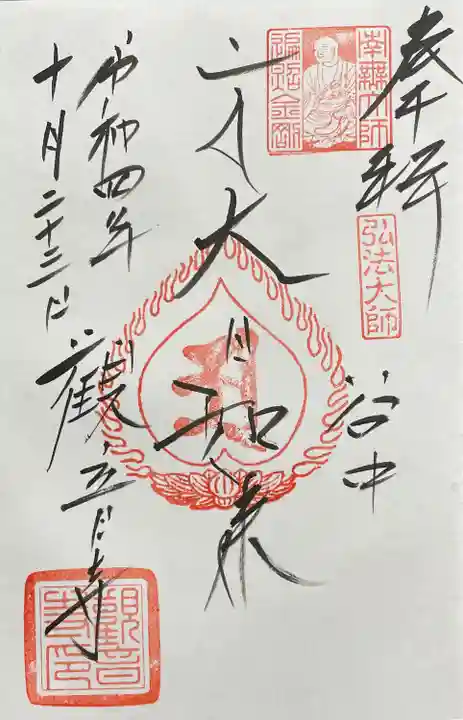 奉拝
南無大師
遍照金剛
弘法大師
谷中
大日如来
令和四年
十月二十三日
觀音寺
觀音
寺印